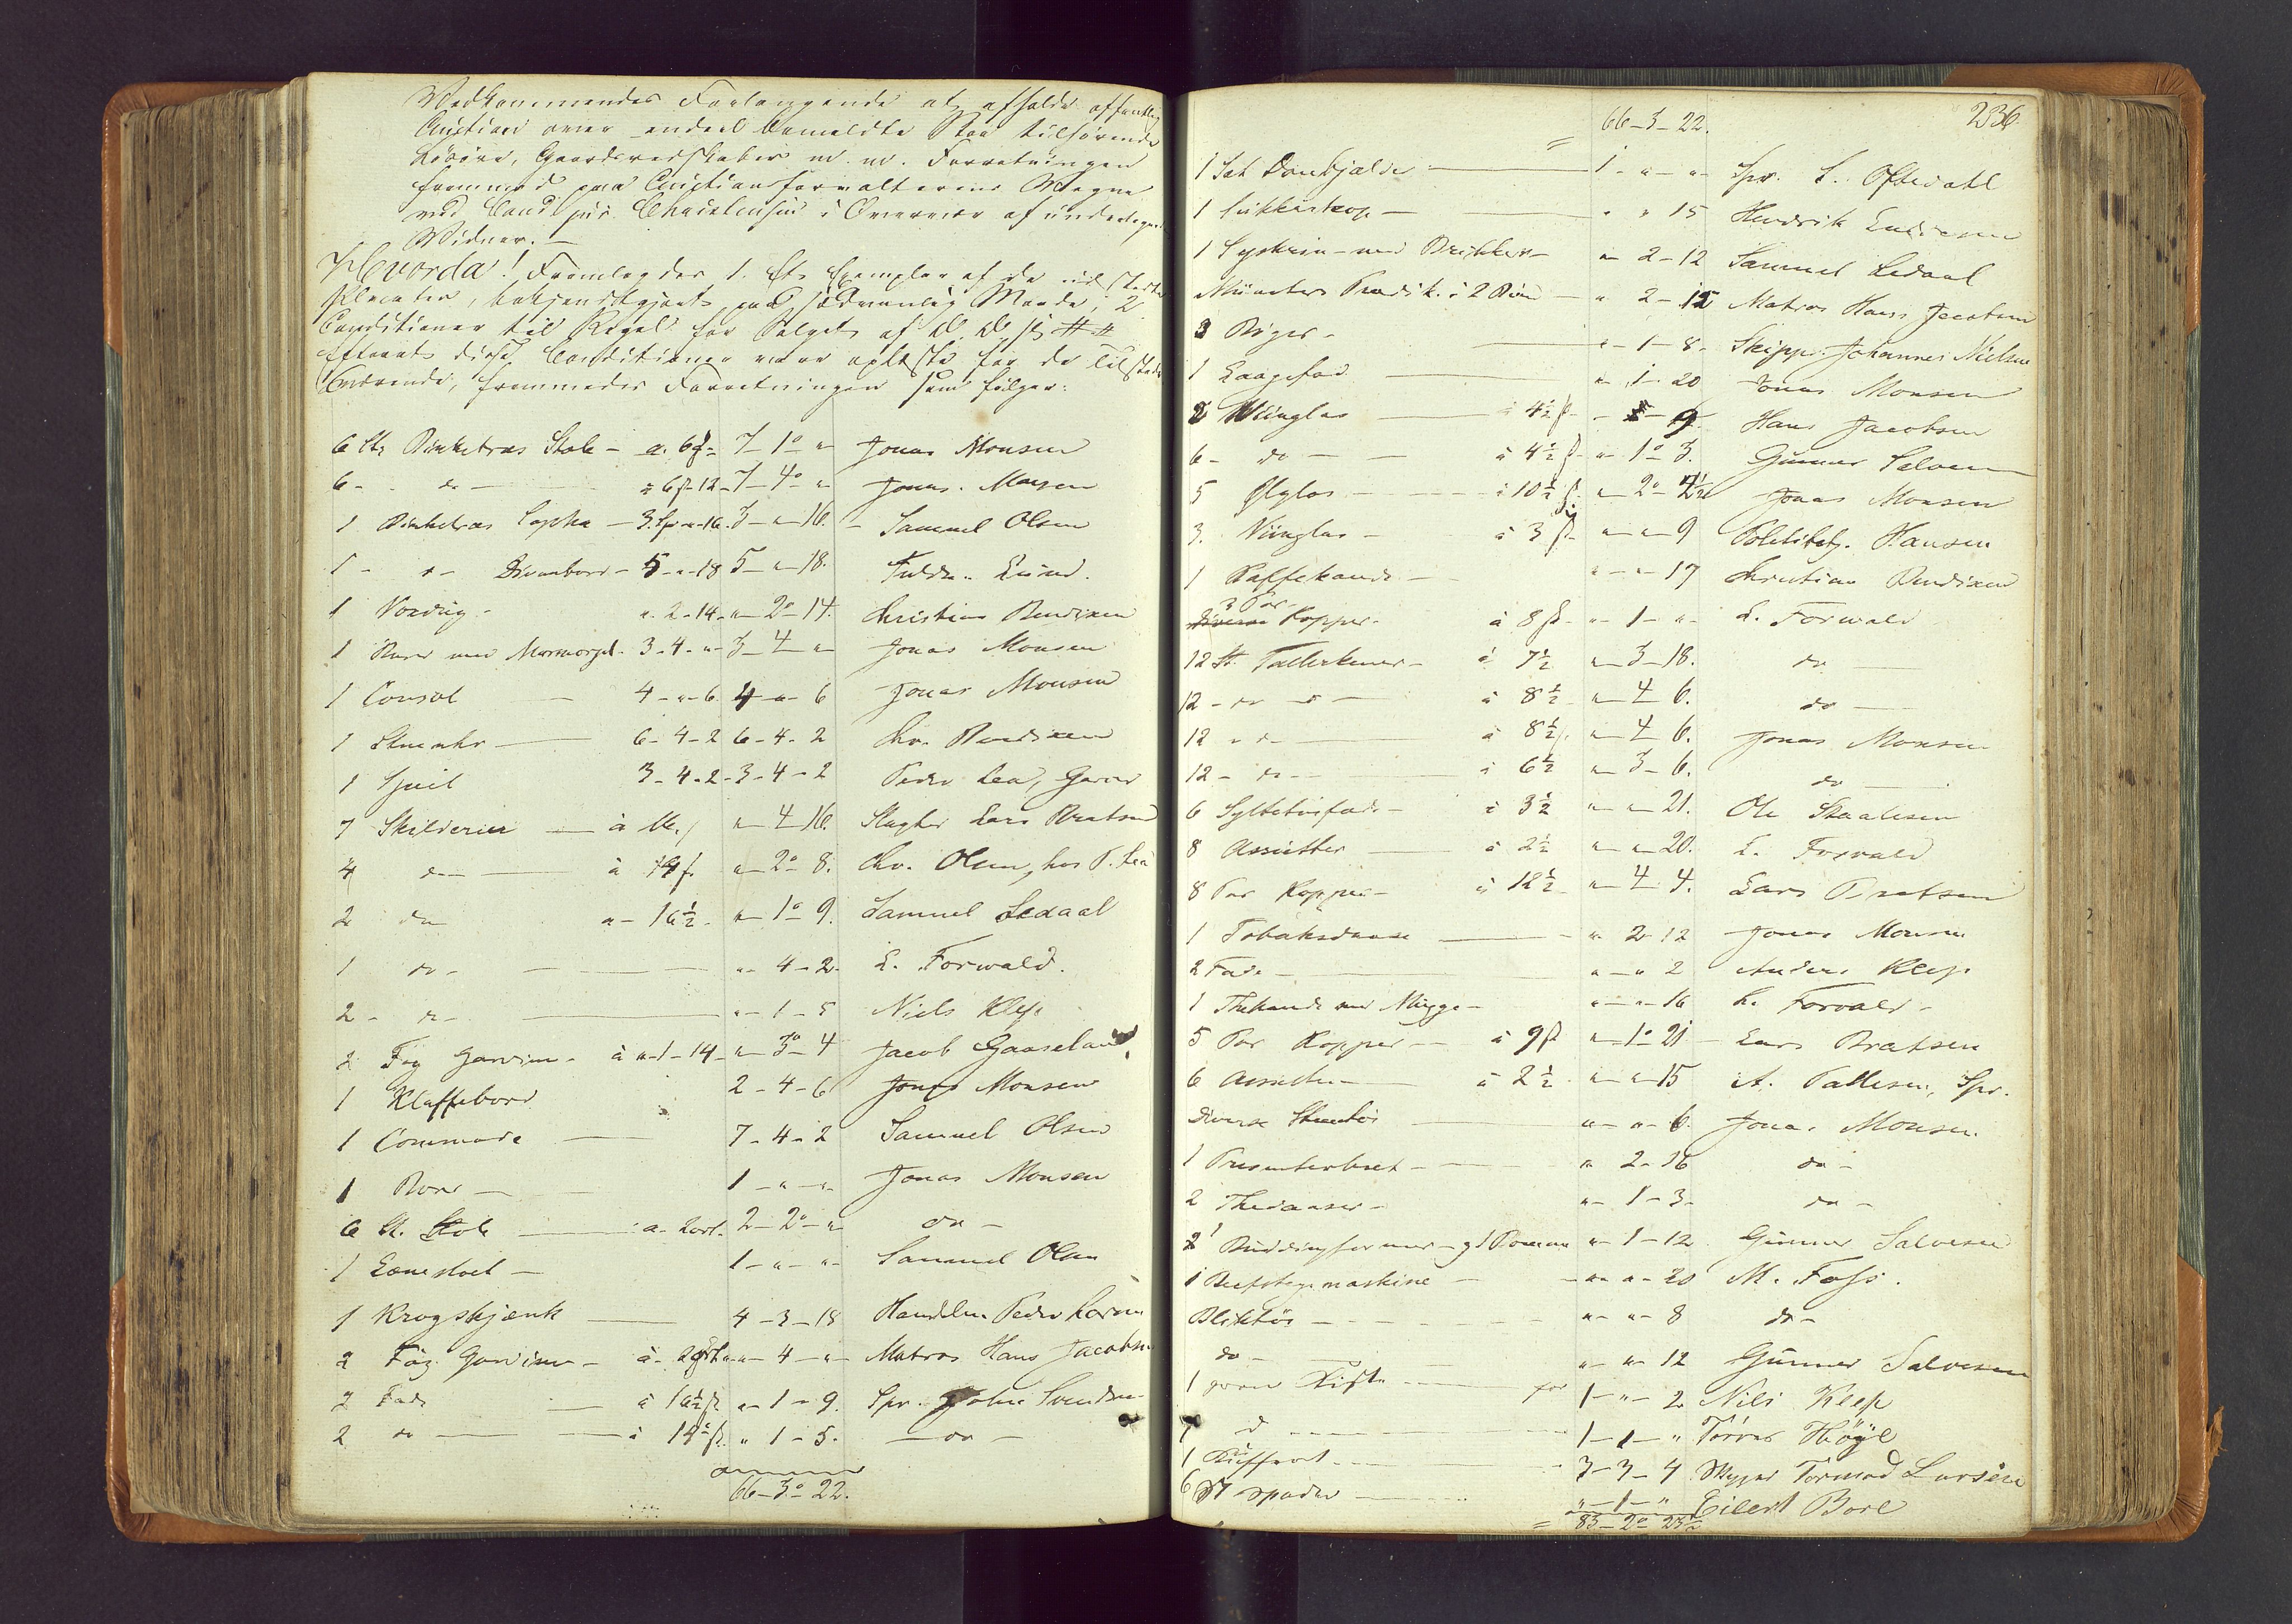 Vedkommendes Forlangende at afholde offentlig
Auction over endeel bemeldte Boe tilhørende
Løsøre, Gaardsredskaber m. m. Forretningen
fremmed paa Auctionsforvalterens Vegne
ved Cand. jur. Christensen i Overvær af undertegnede
Vidner. —
Hvorda! Fremlagdes 1. Et Exemplar af de udstædte
Placater, bekjendtgjort paa sædvanlig Maade, 2
Conditioner til Regel for Salget
Efterat disse Conditioner vare oplæste for de Tilstede
værende, fremmedes Forretningen som følger:
6 St. Birketræs Stole – a. 6 7 – 1° – " Jonas Monsen
6 – do – à 6 – 12 – 7 – 4° – " Jonas Monsen
1 Birketræs Sopha – 3. Sp. " – 16. 3 – " – 16. Samuel Olsen
1 – do – Divanbord – 5 – " – 18 5 – " – 18. Lund.
1 ". 2 – 14. " – 2° – 14. Christian Bendixen
1 Bord med 3 – 4 – " – 3 – 4 – " Jonas Monsen
1 Consol 4 – " – 6. 4 – " – 6 Jonas Monsen
1 Stueuhr 6 – 4 – 2 6 – 4 – 2 Chr. Bendixen
1 Speil 3 – 4 – 2 – 3 – 4 – 2 Peder Lea, Garver
7 Skilderier à 16. " – 4 – 16. Slagter Lars Bratsen
4 do à 14 " – 2° – 8. Chr. Olsen, hos P. Lea
2 do " – 16½ – " – 1° – 9. Samuel Ledaal
1 do – " – 4 – 2 – L. Forwald.
2 – do – " – 1 – 5 Niels Klep
2 Fag Gardiner – à " – 1 – 14 – " – 3° – 4 Jacob Gaaseland
1 Klaffebord 2 – 4 – 6 Jonas Monsen
1 Commode 7 – 4 – 2 Samuel Olsen
1 Bord 1 – " – " – Jonas Monsen
6 St. Stole a. 2 ort. 2 – 2° – " – do –
1 Lænestoel – 1 – " – " – Samuel Olsen
1 Krogskjænk 4 – 3 – 18 Handelsm. Peder Larsen
2 Fag Gardiner – à 2 ort " – 4 – " – Matros Hans Jacobsen
2 Fade à 16½ " – 1 – 9. Spr. John Svendsen
2 do – à 14½ " 1 – 5. – do –
66 – 3° – 22.
236
66 – 3 – 22.
1 1 – " – " – Spr. L. Oftedahl
1 Sukkerkop – " " 15 Hendrik Endresen
1 Syskrin – med " 2 – 12 Samuel Ledaal
Münsters Prædik. i 2 Bind " 2 – 15 Matros Hans Jacobsen
3 Bøger – " – 1 – 8 – Skipper Johannes Nielsen
1 Laagefad " – 1 – 20 Jonas Monsen
2 Viinglas à 4½ – " – 9. Hans Jacobsen
6 – do – à 4½ – " – 1° 3. Gunner Salvesen
5 Ølglas – à 10½ " – 2° – 4½ Jonas Monsen
3. Viinglas – à 3 " – " – 9 Politibetj. Hansen
1 Kaffekande – " – " – 17 Christian Bendixen
3 Par
Diverse Kopper – à 8 " – 1 – " – L. Forwald
12 St. Tallerkener – à 7½ " – 3 – 18. do
12 – do – do – à 8½ " – 4 6. do
12 – do – à 8½ " – 4 6. Jonas Monsen
12 – do – à 6½ " – 3 – 6. do
6 Syltetøifade – à 3½ " – " – 21. Ole Staalesen
8 Assietter à 2½ " – " – 20. L. Forwald
8 Par Kopper – à 12½ " – 4 4. Lars Bratsen
1 Tobaksdaase " 2 12 Jonas Monsen
2 Fade – " – " 2 Anders Klep
1 Thekande med Mugge – " – " – 16 L. Forwald –
5 Par Kopper – à 9 " – 1° 21 – Lars Bratsen
6 Assietter – à 2½ " – " – 15 A. Pallesen, Spr.
Diverse Steentøi " – " – 6. Jonas Monsen.
1 Presenterbret – " 2 – 16 do –
2 Thedaaser – " – 1 – 3 – do –
2 Buddingformer – " – 1 – 12 Gunner Salvesen
1 Beefstegemaskine " – " – 20 M. Foss.
Bliktøi " – " – 8 do –
do – " – " 12 Gunner Salvesen
1 Kiste for 1 – " – 2 Nils Klep
1 d 1 – 1 – " Tørres Høyl
1 Kuffert 3 – 3 – 4 Skipper Tormod Larsen
6 St Spader " – 1 – " Eilert Bore
83 – 2° 23½